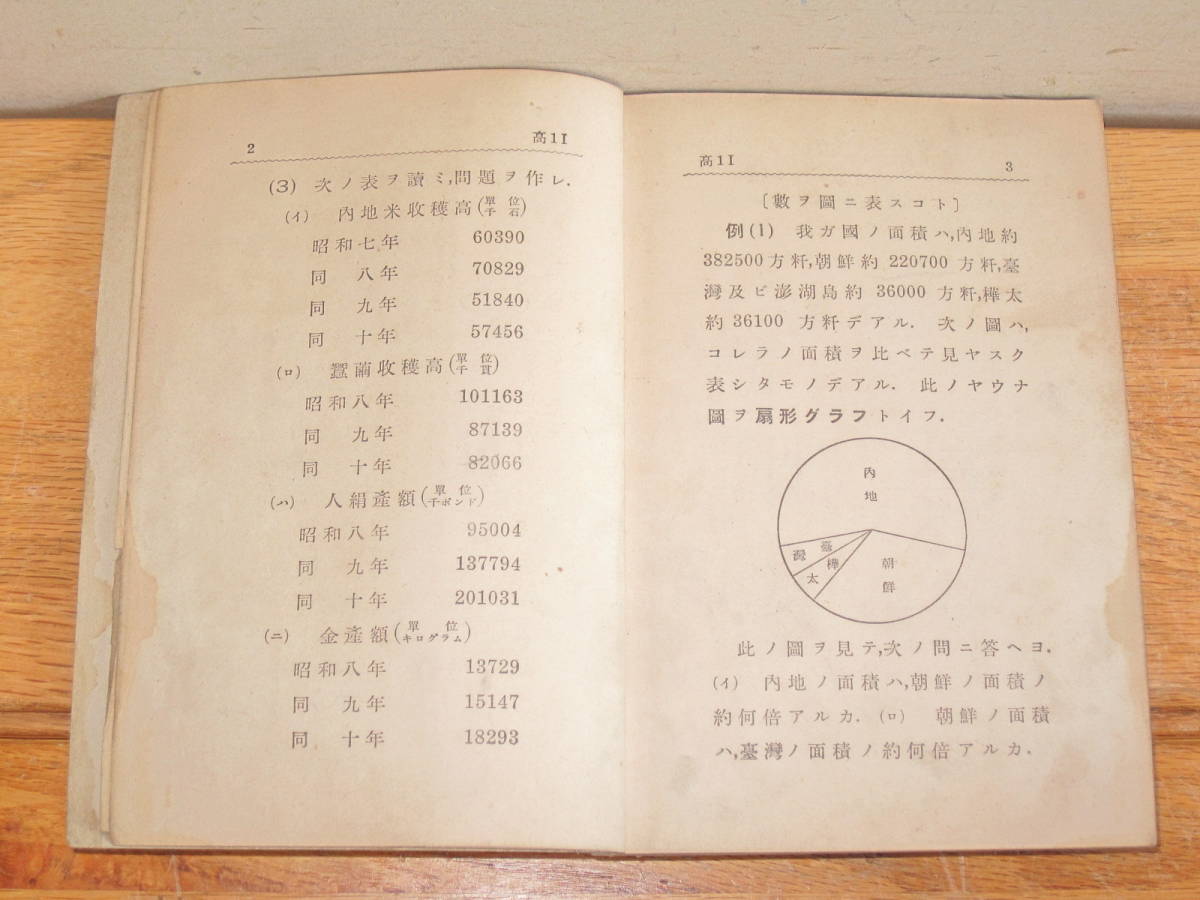 2 高1I
(3) 次ノ表ヲ讀ミ,問題ヲ作レ.
(イ) 內地米收穫高(單位千石)
昭和七年 60390
同 八年 70829
同 九年 51840
同 十年 57456
(ロ) 蠶繭收穫高(單位千貫)
昭和八年 101163
同 九年 87139
同 十年 82066
(ハ) 人絹產額(單位千ポンド)
昭和八年 95004
同 九年 137794
同 十年 201031
(ニ) 金產額(單位キログラム)
昭和八年 13729
同 九年 15147
同 十年 18293
高1I 3
〔數ヲ圖ニ表スコト〕
例(1) 我ガ國ノ面積ハ,內地約
382500方粁,朝鮮約 220700 方粁,臺
灣及ビ澎湖島約 36000 方粁,樺太
約36100 方粁デアル. 次ノ圖ハ,
コレラノ面積ヲ比ベテ見ヤスク
表シタモノデアル. 此ノヤウナ
圖ヲ扇形グラフトイフ.
內地
臺灣
樺太
朝鮮
此ノ圖ヲ見テ,次ノ問ニ答ヘヨ.
(イ) 內地ノ面積ハ,朝鮮ノ面積ノ
約何倍アルカ. (ロ) 朝鮮ノ面積
ハ,臺灣ノ面積ノ約何倍アルカ.